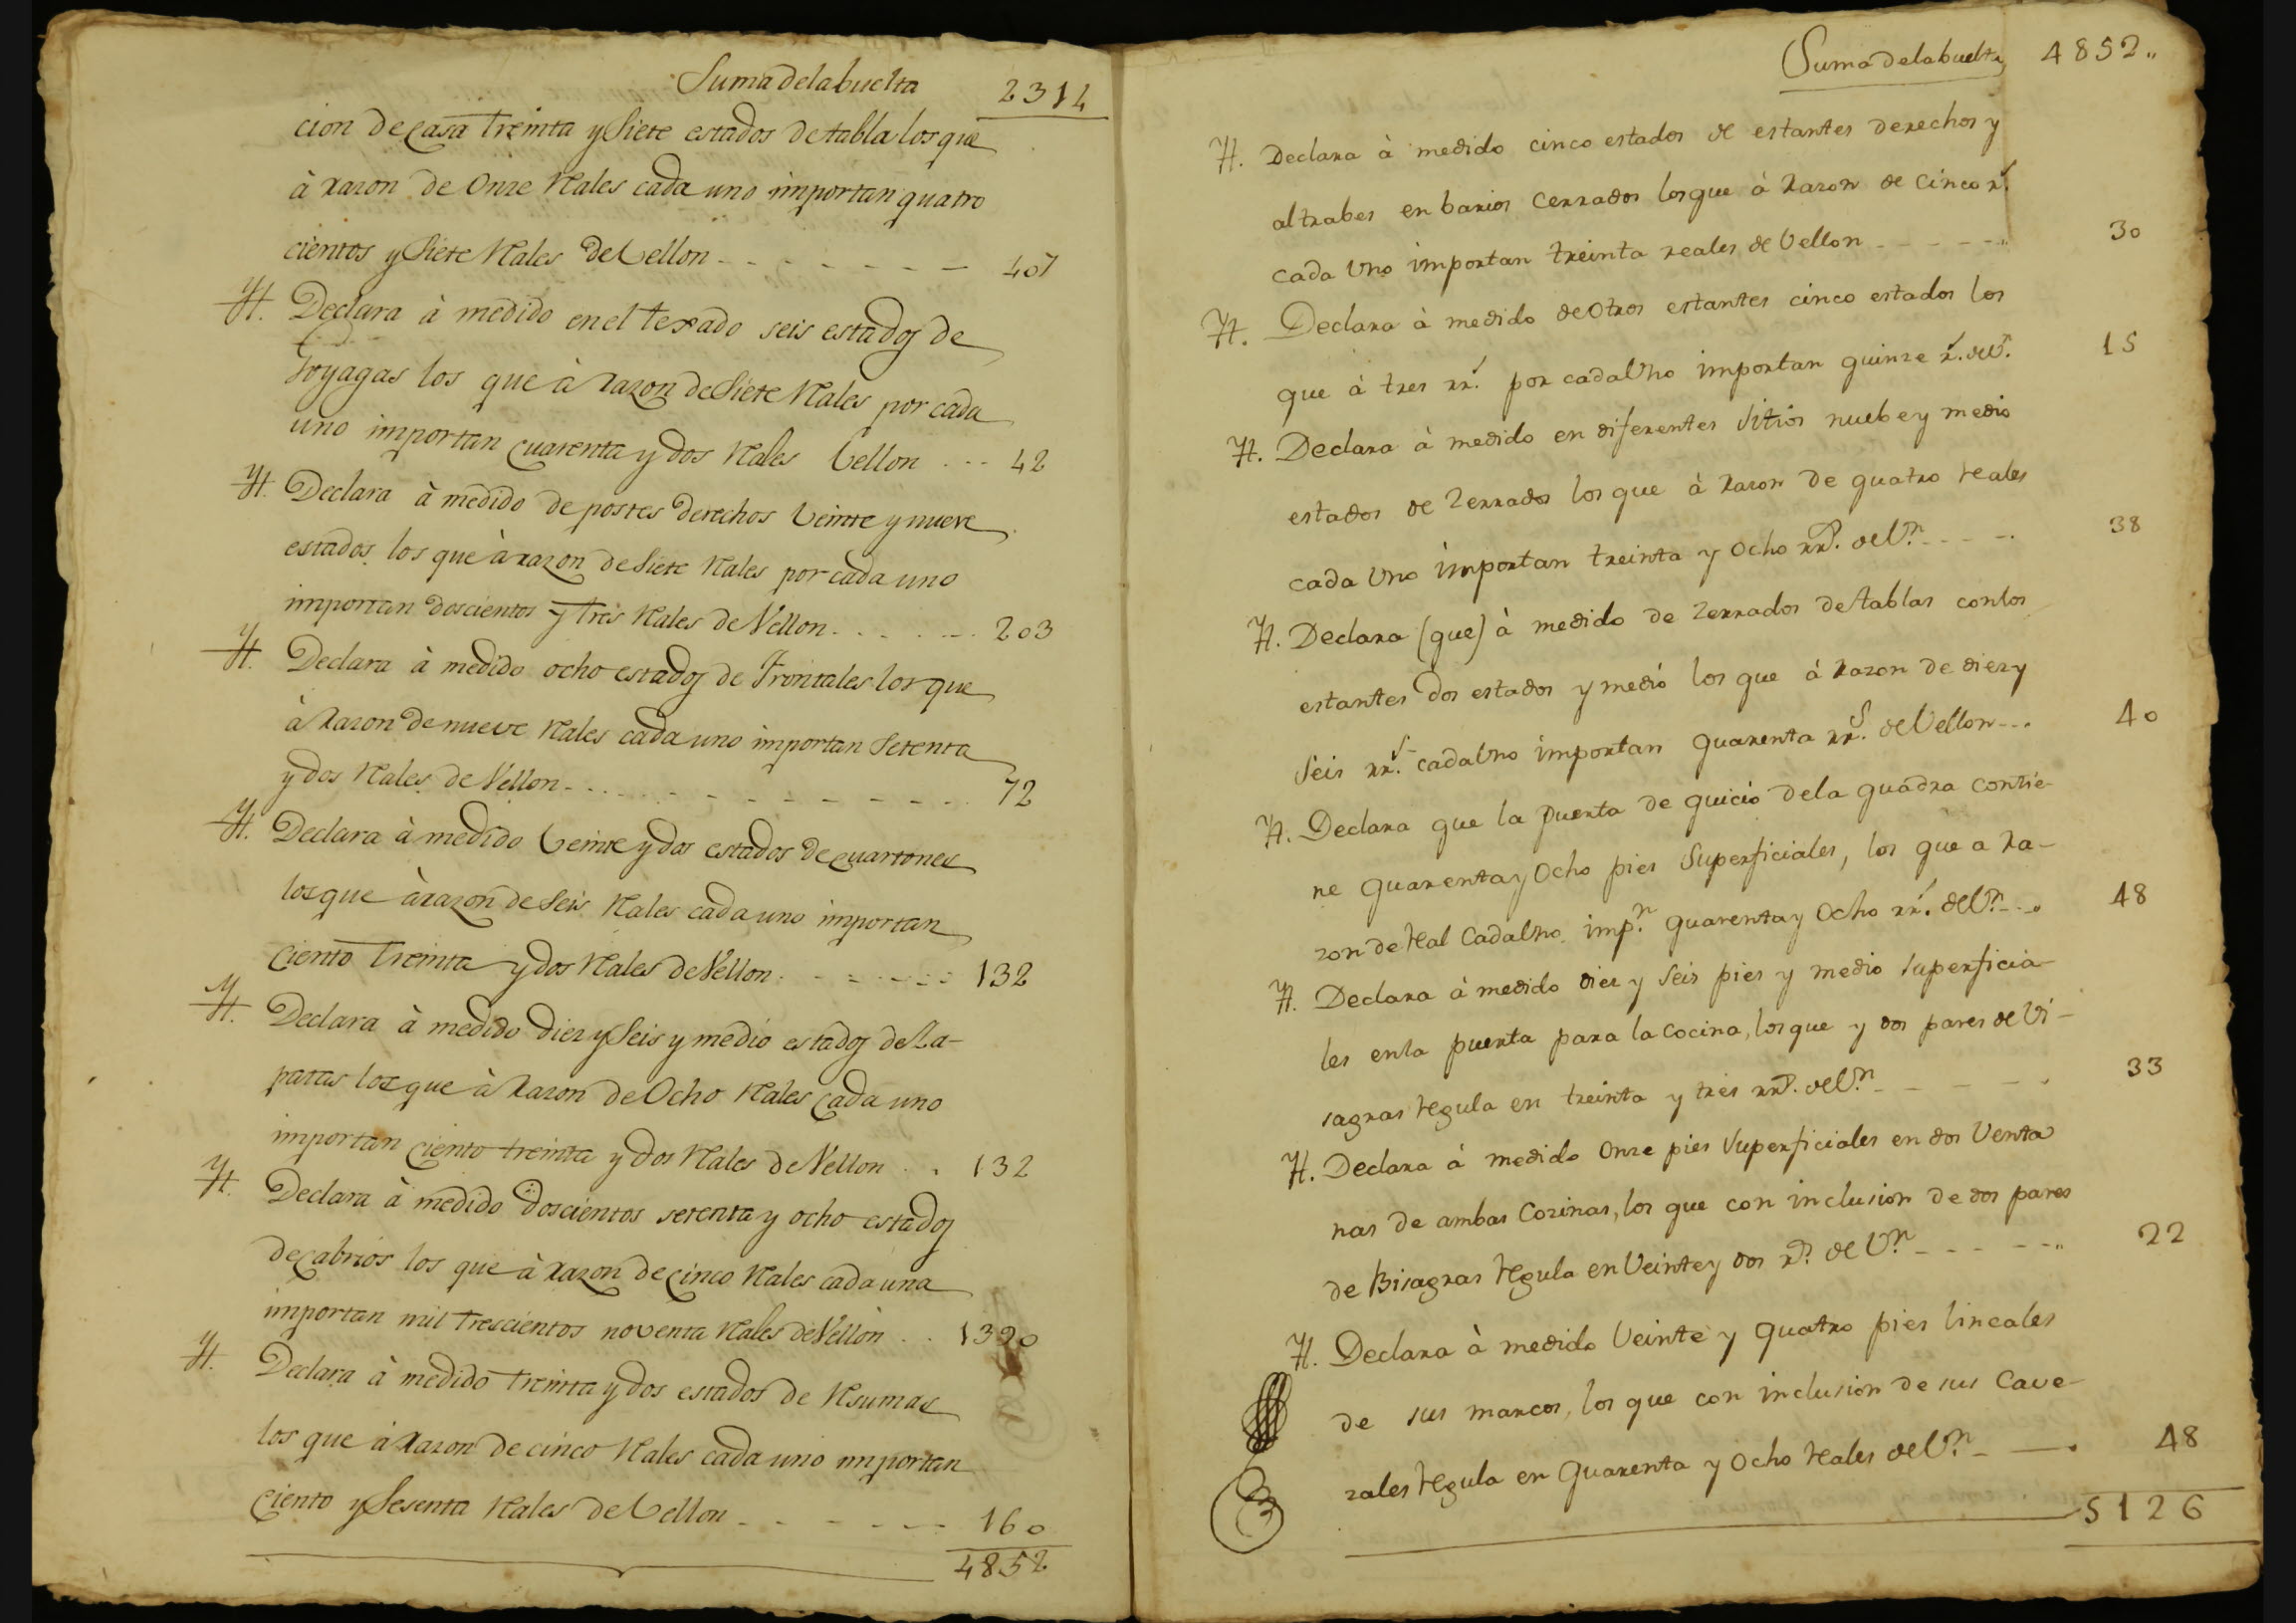 Suma delabuelta 2314
cion de casa treinta y siete estados de tabla los que
à razon de Onze Rales cada uno importan quatro
cientos y siete Rales de Vellon 407
Yt. Declara à medido en el texado seis estados de
los que à razon de Siete Rales por cada
uno importan cuarenta y dos Rales Vellon 42
Yt. Declara à medido de postes derechos Veinte y nueve
estados los que à razon de siete Rales por cada uno
importan doscientos y tres Rales de Vellon 203
Yt. Declara à medido ocho estados de Frontales los que
à Razon de nueve Rales cada uno importan Setenta
y dos Rales de Vellon 72
Yt. Declara à medido Veinte y dos estados de cuartones
los que à razon de seis Rales cada uno importan
Ciento treinta y dos Rales de Vellon 132
Yt. Declara à medido diez y Seis y medio estados de Za-
patas los que à Razon de Ocho Rales cada uno
importan ciento treinta y dos Rales de Vellon 132
Yt. Declara à medido doscientos setenta y ocho estados
de cabrios los que à razon de cinco Rales cada una
importan mil trescientos noventa Rales de Vellon 1390
Yt. Declara à medido treinta y dos estados de Resumas
los que à Razon de cinco Rales cada uno importan
Ciento y Sesenta Rales de Vellon 160
4852
Suma delabuelta 4852
Yt. Declara à medido cinco estados de estantes derechos y
al trabes en barios cerrados los que à Razon de cinco rs.
cada Uno importan treinta reales de Vellon 30
Yt. Declara à medido de Otros estantes cinco estados los
que à tres rrs. por cada Uno importan quinze rs. de Vn. 15
Yt. Declara à medido en diferentes Sitios nuebe y medio
estados de Zerrados los que à Razon de quatro Reales
cada Uno importan treinta y Ocho rrs. de Vn. 38
Yt. Declara (que) à medido de Zerrados de tablas con los
estantes dos estados y medio los que à Razon de diez y
Seis rrs. cada Uno importan quarenta rrs. de Vellon 40
Yt. Declara que la puerta de quicio de la quadra contie-
ne quarenta y Ocho pies Superficiales, los que a Ra-
zon de Real Cada Uno impn. quarenta y Ocho rrs. de Vn. 48
Yt. Declara à medido diez y Seis pies y medio superficia-
les en la puerta para la Cocina, los que y dos pares de Vi-
sagras Regula en treinta y tres rrs. de Vn. 33
Yt. Declara à medido Onze pies Superficiales en dos Venta
nas de ambas Cozinas, los que con inclusion de dos pares
de Bisagras Regula en Veinte y dos rs. de Vn. 22
Yt. Declara à medido Veinte y quatro pies lineales
de sus marcos, los que con inclusion de sus Cave-
zales Regula en Quarenta y Ocho Reales de Vn. 48
5126